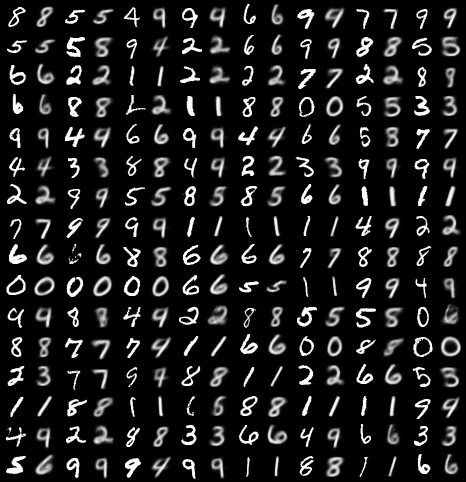 8 8 5 5 4 9 9 9 6 6 9 9 7 7 9 9
5 5 5 8 9 4 2 2 6 6 9 9 8 8 5 5
6 6 2 2 1 1 2 2 2 2 7 7 2 2 8 8
6 6 8 8 2 2 1 1 8 8 0 0 5 5 3 3
9 9 4 4 6 6 9 9 4 4 6 6 5 8 7 7
4 4 3 3 8 8 4 9 2 2 3 3 9 9 9 9
2 2 9 9 5 5 8 5 8 5 6 6 1 1 1 1
7 7 9 9 9 9 1 1 1 1 1 1 4 9 2 2
6 6 6 6 8 8 6 6 6 6 7 7 8 8 8 8
0 0 0 0 0 0 6 6 5 5 1 1 9 9 4 9
9 9 8 8 4 9 2 2 8 8 5 5 5 8 0 6
8 8 7 7 7 4 1 1 6 6 0 0 8 8 0 0
2 3 7 7 9 4 8 8 1 1 2 2 6 6 5 3
1 1 8 8 1 1 6 6 8 8 1 1 1 1 9 9
4 9 2 2 8 8 3 3 6 6 4 9 6 6 3 3
5 6 9 9 9 4 9 9 1 1 8 8 1 1 6 6